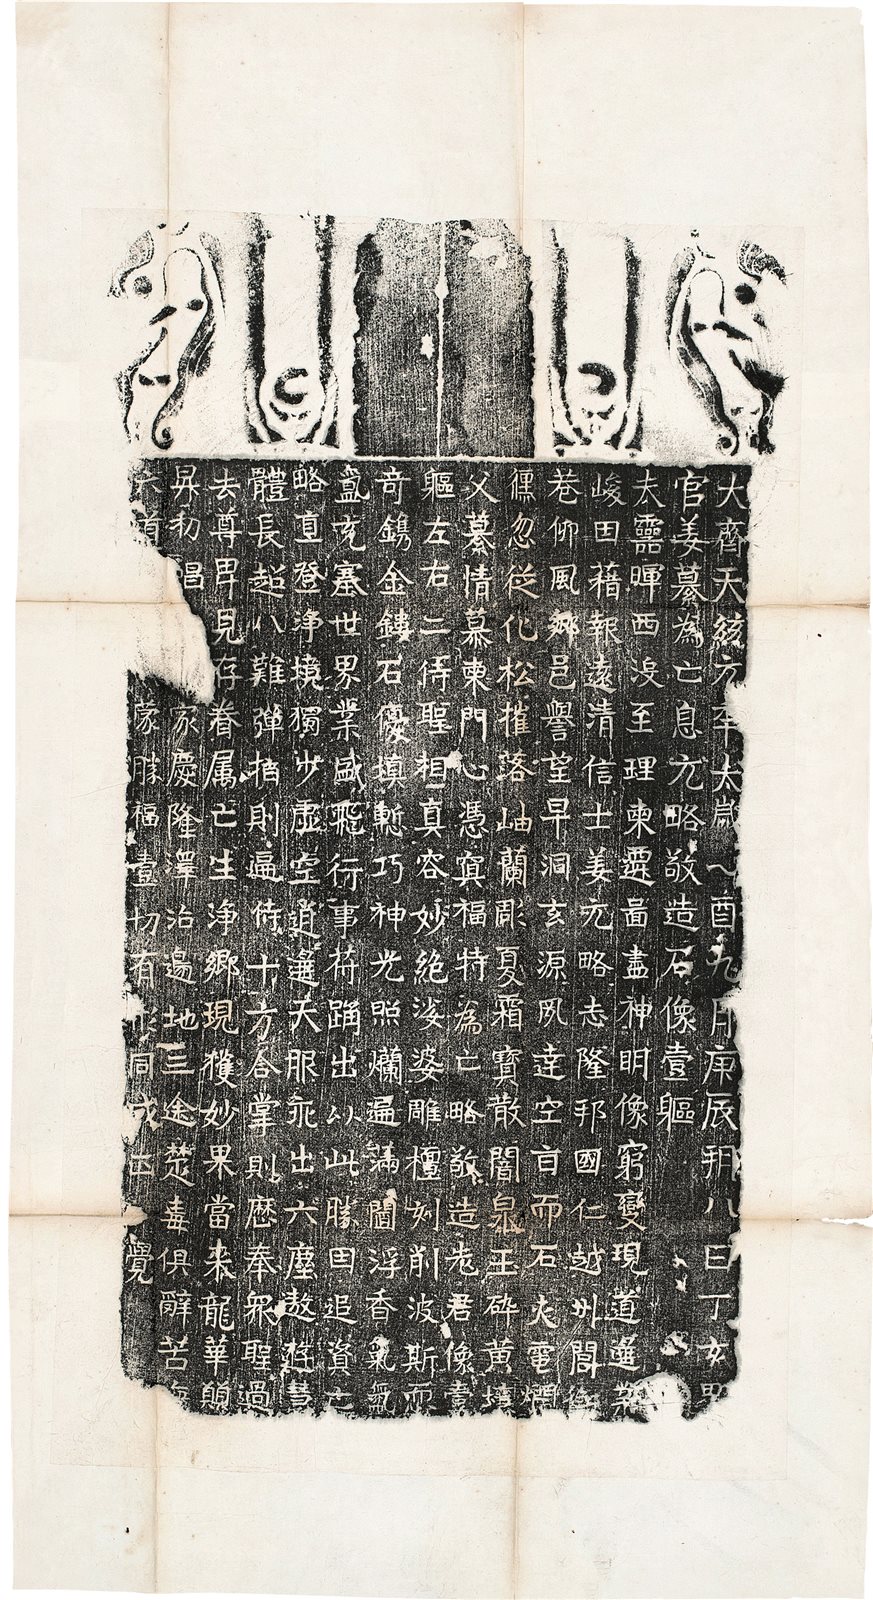 大齊天統元年太歲乙酉九月庚辰朔八日丁亥男
官姜纂為亡息元略敬造石像壹軀
夫靈暉西沒至理東遷啚盡神明像窮變現道遥
峻因藉報遠清信士姜元略志隆邦國仁越州閭
巷仰風鄉邑譽望早洞玄源夙達空旨而石火電爓
倏忽從化松摧落岫蘭彫夏霜寶散闇泉玉碎黃壤
父纂情慕東門心憑冥福特為亡略敬造老君像壹
軀左右二侍聖相真容妙絕娑婆雕檀刻削波斯而
奇鎸金鏤石優填慙巧神光照爛遍滿閻浮香氣氤
氳充塞世界業盛飛行事符踊出以此勝因追資亡
略直登淨境獨步虛空逍遥天服乖出六塵敖遊慧
體長超八難彈指則遍侍十方合掌則歷奉衆聖過
去尊卑見存眷属亡生淨鄉現獲妙果當来龍華願
昇初唱家慶隆澤洽邊地三途楚毒俱辭苦海
六道蒙勝福壹切有形同成正覺